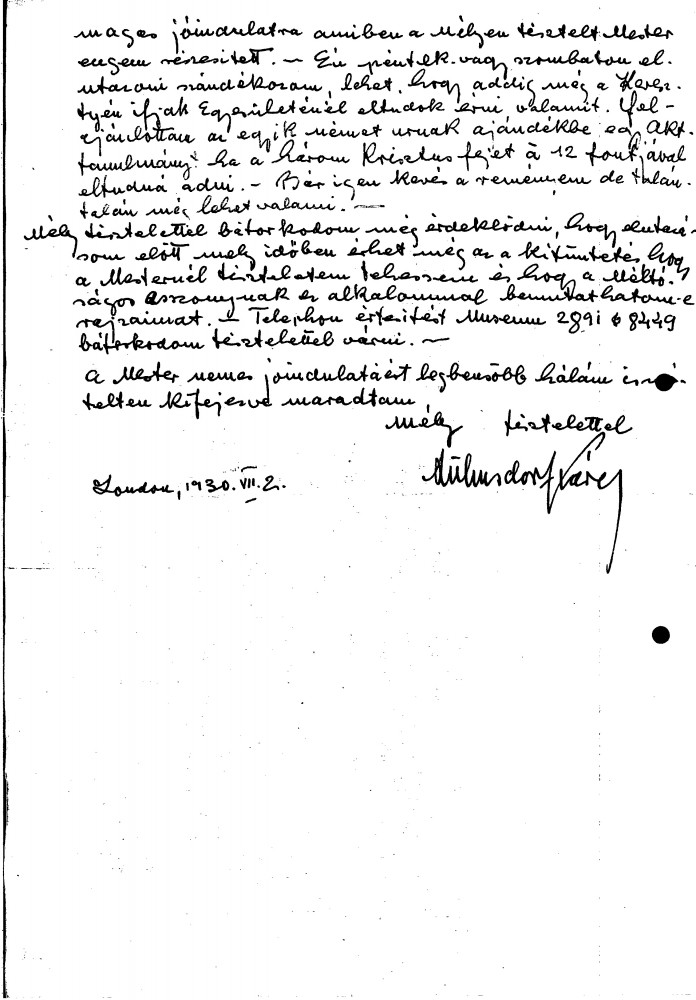 magas jóindulatra amiben a Mélyen tisztelt Mester
engem részesitett. — Én péntek vagy szombaton el-
utazni szándékozom, lehet, hogy addig még a Keresz-
tyén Ifjak Egyesületénél eltudok érni valamit. Fel-
ajánlottam az egyik német urnak ajándékbe egy Akt
tanulmányt ha a három Krisztus fejet à 12 fontjával
eltudná adni. — Bár igen kevés a reményem de talán-
talán még lehet valami. —
Mély tisztelettel bátorkodom még érdeklődni, hogy elutazá-
som előtt mely időben érhet még az a kitüntetés hogy
a Mesternél tiszteletem tehessem és hogy a Méltó-
ságos Asszonynak ez alkalommal bemutathatom-e
rajzaimat. — Telephon értesitést Museum 2891 8449
bátorkodom tisztelettel várni. —
A Mester nemes jóindulatáért legbensőbb hálám ismé-
telten kifejezve maradtam
Mély tisztelettel
London, 1930. VII. 2.
Károly